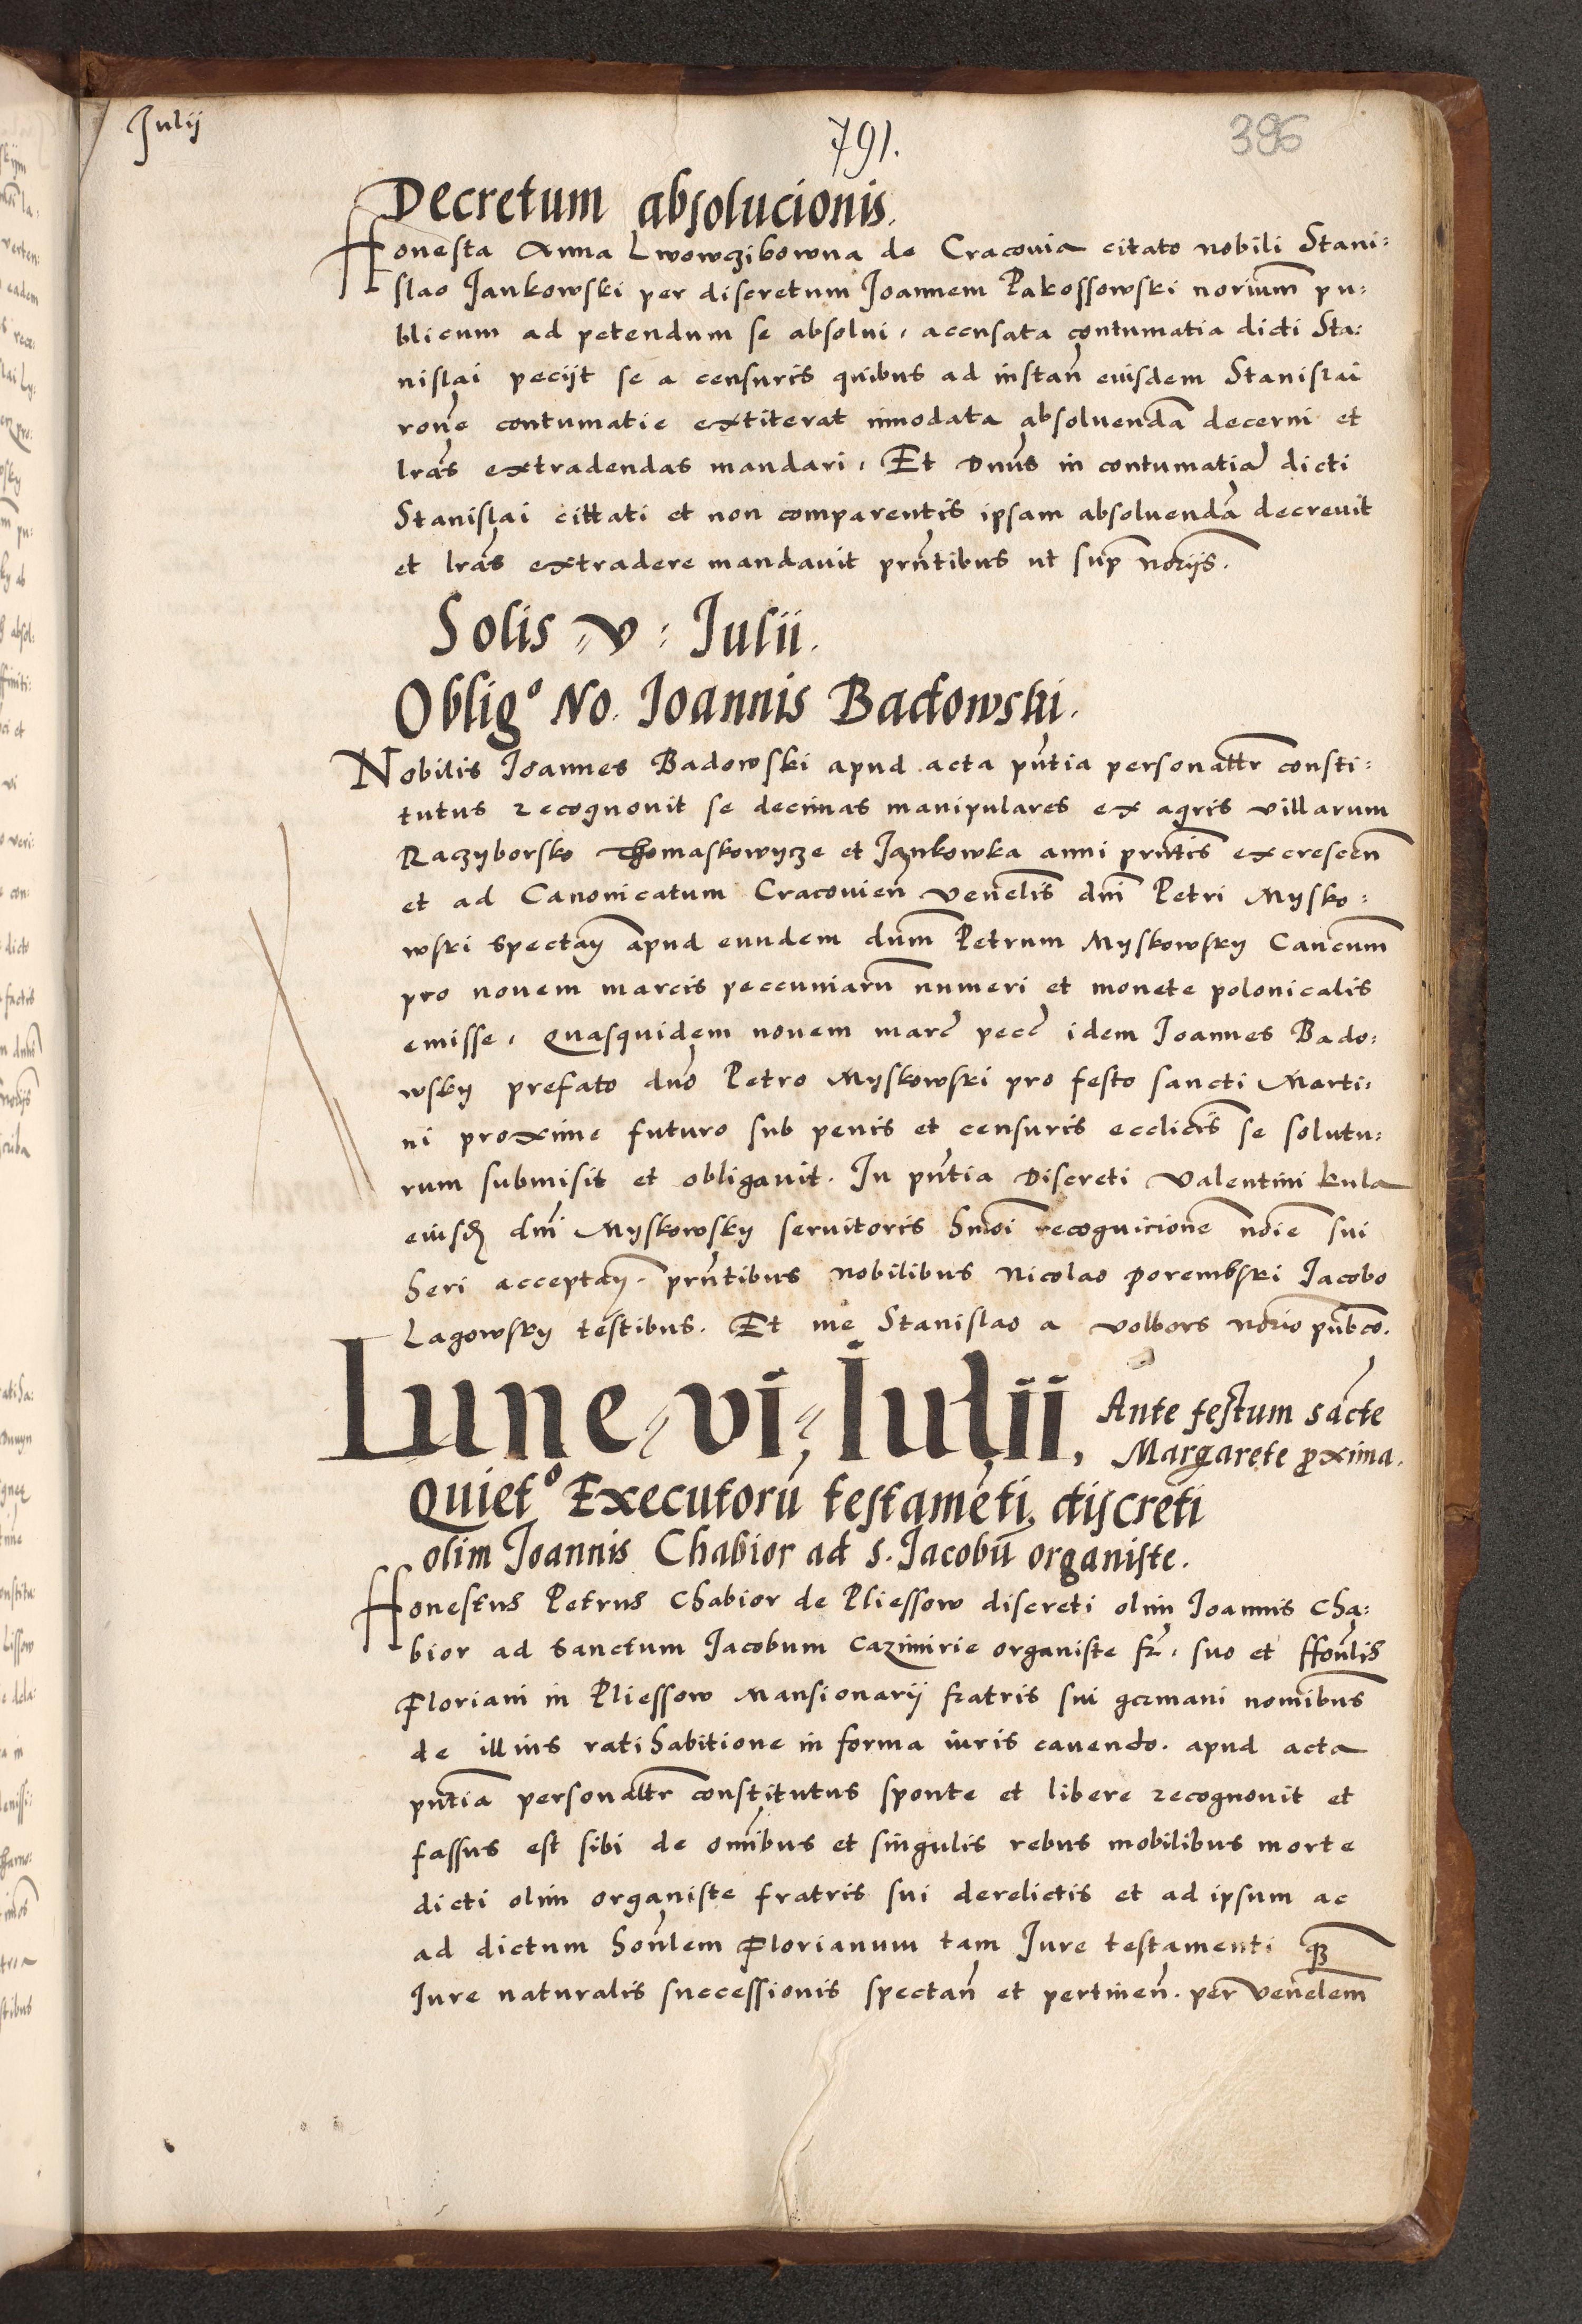 Julij
791.
386
Decretum absolucionis.
Honesta Anna Lwowczibowna de Cracouia citato nobili Stani:
slao Jankowski per discretum Joannem Pakossowski norium̄ pu:
blicum ad petendum se absolui, accusata contumatia dicti Sta:
nislai pecijt se a censuris quibus ad instan̄ eiusdem Stanislai
rone̅ contumatie extiterat innodata absoluenda̅ decerni et
lra̅s extradendas mandari, Et Dnu̅s in contumatia̅ dicti
Stanislai cittati et non comparentis ipsam absoluenda̅ decreuit
et lra̅s extradere mandauit prn̅tibus ut sup̅ norijs̅.
Solis v: Julii.
Oblig° No. Joannis Badowski.
Nobilis Joannes Badowski apud acta pn̅tia personaltr̅ consti:
tutus recognouit se decimas manipulares ex agris villarum
Raczyborsko Thomaskowycze et Jankowka anni prn̅tis excrescen̅
et ad Canonicatum Cracouien̅ venelis̅ dni̅ Petri Mysko:
wski spectan̅ apud eundem dum̅ Petrum Myskowsky Cancum̅
pro nouem marcis peccuniaru̅ numeri et monete polonicalis
emisse, Quasquidem nouem marc̅ pecc̅ idem Joannes Bado:
wsky prefato dno̅ Petro Myskowski pro festo sancti Marti:
ni proxime futuro sub penis et censuris ecclicis̅ se solutu:
rum submisit et obligauit. In pn̅tia Discreti Valentini kula
eiusd̅ dni̅ Myskowsky seruitoris hmoi̅ recognicione̅ noie̅ sui
heri acceptan̅. prn̅tibus nobilibus Nicolao Porembski Jacobo
Lagowsky testibus. Et me Stanislao a Volbors norio̅ pub̅co.
Lune vi Julii, Ante festum sa̅cte
Margarete p̱xima.
Quiet° Executoru̅ testame̅ti discreti
olim Joannis Chabior ad S. Jacobu̅ organiste.
Honestus Petrus Chabior de Pliessow discreti olim Joannis Cha:
bior ad Sanctum Jacobum Cazimirie organiste fr̅. suo et hon̅lis
Floriani in Pliessow Mansionarij fratris sui germani nomib̅us
de illius ratihabitione in forma iuris cauendo. apud acta
pn̅tia personaltr̅ constitutus sponte et libere recognouit et
fassus est sibi de omi̅bus et singulis rebus mobilibus morte
dicti olim organiste fratris sui derelictis et ad ipsum ac
ad dictum hon̅lem Florianum tam Jure testamenti q̅ȝ
Jure naturalis successionis spectan̅ et pertinen̅. per venelem̅